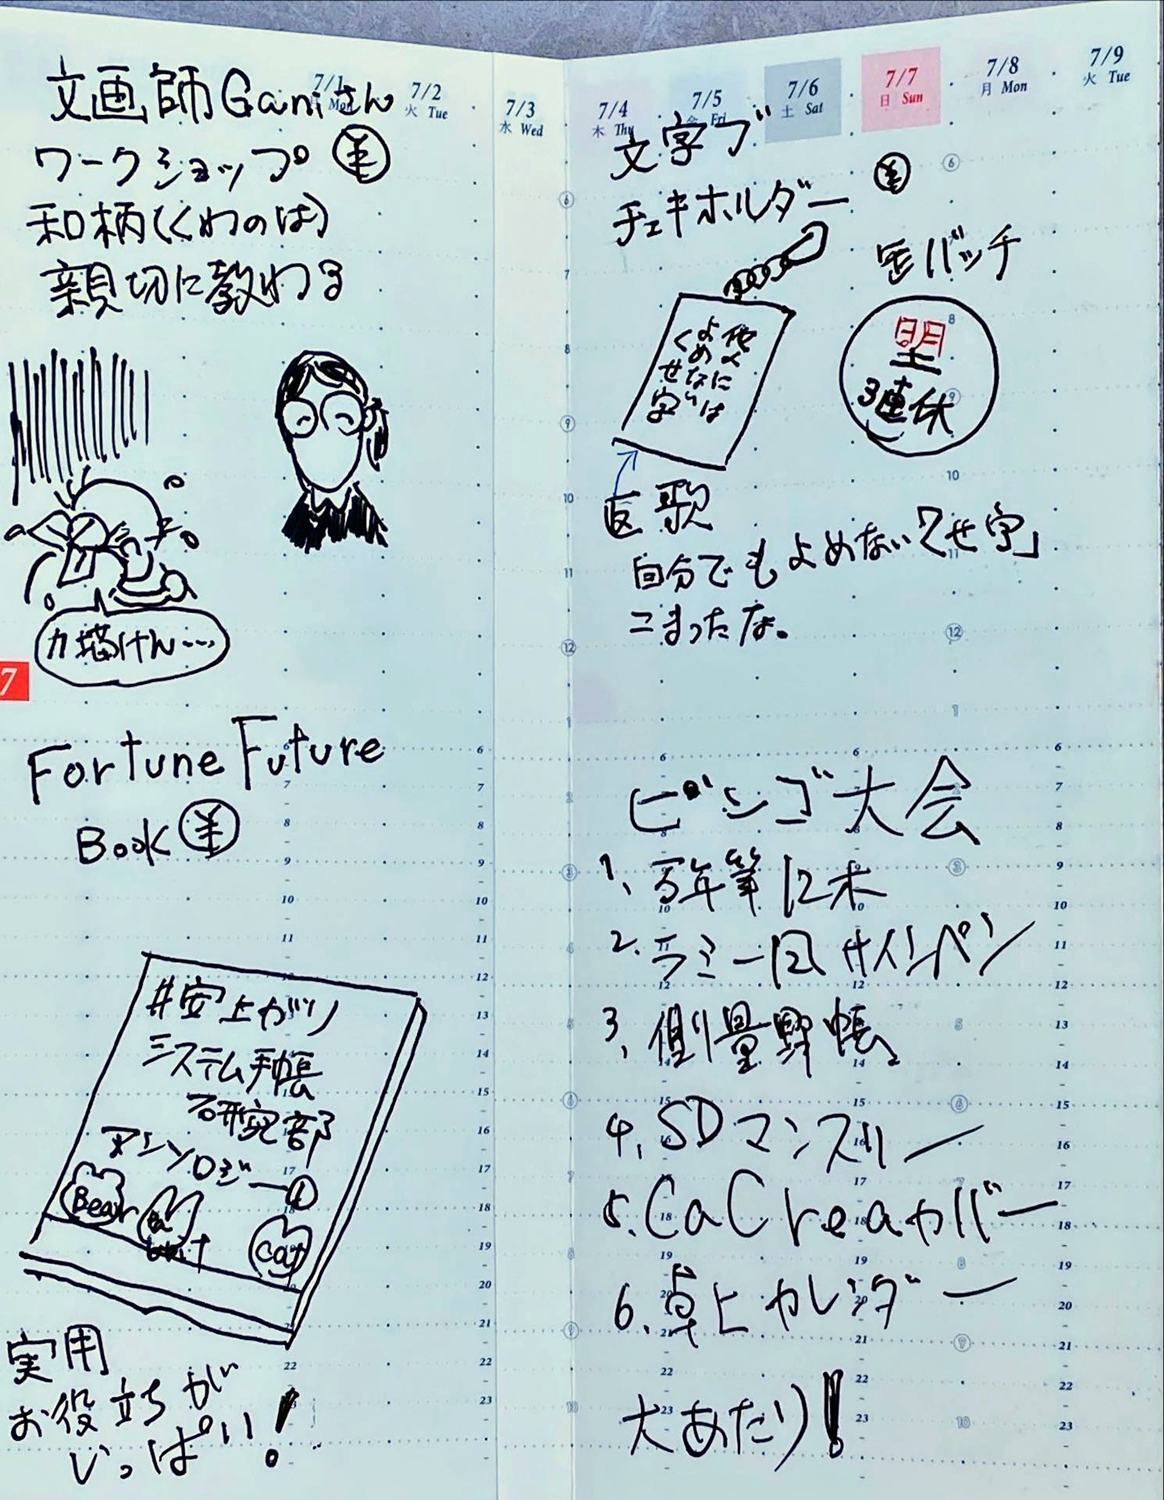 7/1 月 Mon
7/2 火 Tue
7/3 水 Wed
7/4 木 Thu
7/5 金 Fri
7/6 土 Sat
7/7 日 Sun
7/8 月 Mon
7/9 火 Tue
文画師Ganiさん
ワークショップ ¥
和柄(くわのは)
親切に教わる
カ描けん…
7
Fortune Future
Book ¥
#安上がり
システム手帳
研究部
アンソロジー
Bear
Cat
実用
お役立ちが
いっぱい!
文字ブ
チェキホルダー ¥
缶バッチ
他人には
よめない
くせ字
望
3連休
返歌
自分でもよめない「くせ字」
こまったな。
ビンゴ大会
1、万年筆12本
2、ラミー風サインペン
3、測量野帳
4、SDマンスリー
5、CaCreaカバー
6、卓上カレンダー
大あたり!